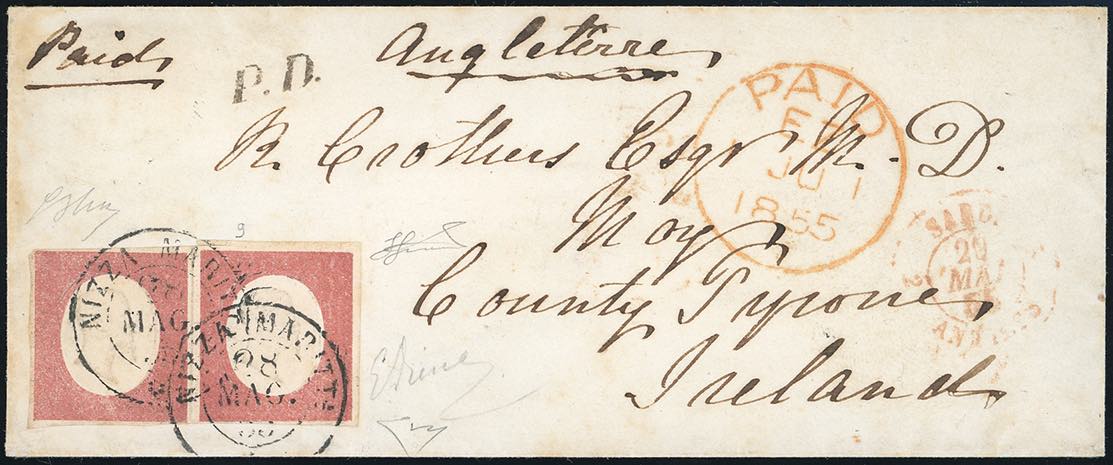 Paid
Angleterre
P.D.
R. Crothers Esqr M. D.
Moy
County Tyrone
Ireland
PAID
JU 1
1855
SARD.
29
MAI
ANTIBES
NIZZA MARIT
MAG.
NIZZA MARITT
28
MAG.
9